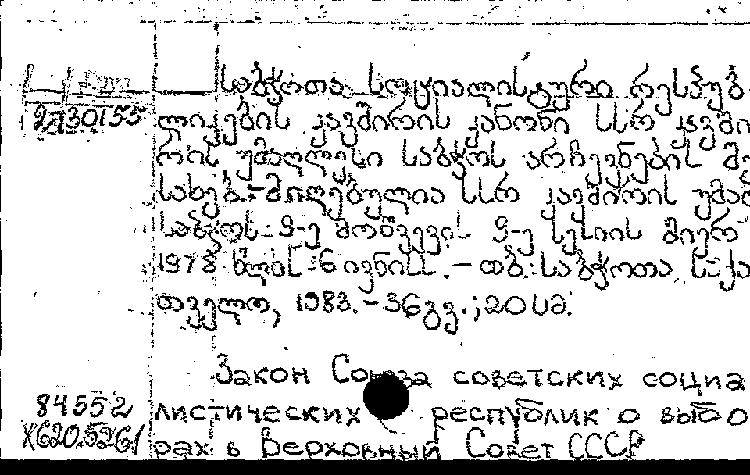 საბჭოთა სოციალისტური რესპუბ
2Д30155
ლიკების კავშირის კანონი სსრ კავში
რის უმაღლესი საბჭოს არჩევნების
სახებ.-მიღებულია სსრ კავშირის უმაღ
საბჭოს 9-ე მოწვევის 9-ე სესიის მიერ
1978 წლის 6 ივნისს. - თბ.: საბჭოთა საქა
თველო, 1983.-36გვ.;20 სმ.
Закон Союза советских социа
84552
листических республик о выбо
X620.5261
рах в Верховный Совет СССР